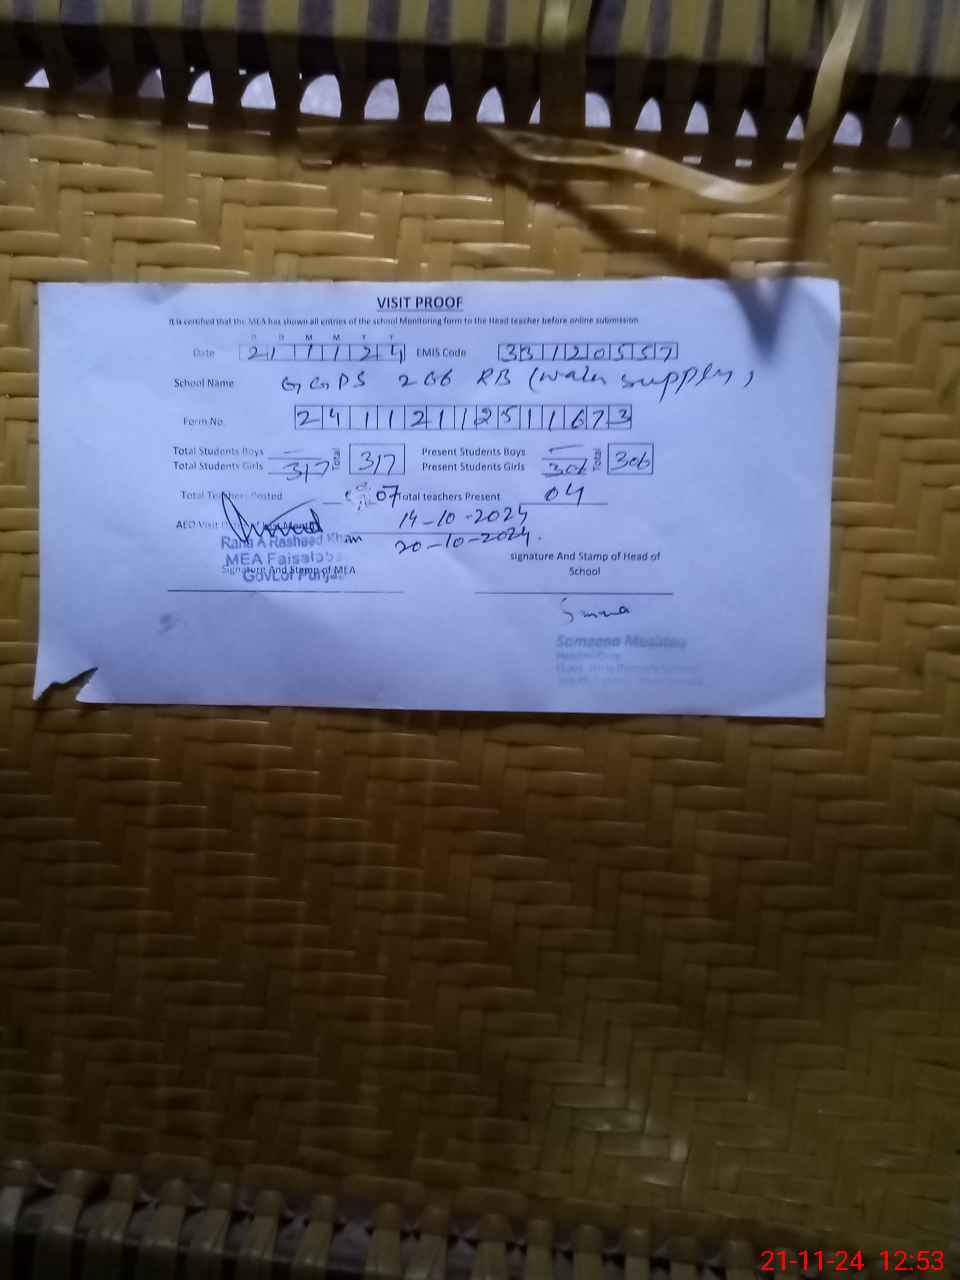 VISIT PROOF
It is certified that the MEA has shown all entries of the school Monitoring form to the Head teacher before online submission
D D M M Y Y
Date 2 1 1 1 2 4 EMIS Code 3 3 1 2 0 5 5 7
School Name GGPS 266 RB (water supply)
Form No. 2 4 1 1 2 1 1 2 5 1 1 6 7 3
Total Students Boys — Total 317 Present Students Boys — Total 306
Total Students Girls 317 Present Students Girls 306
Total Teachers Posted 07 Total teachers Present 04
AEO Visit 14-10-2024
20-10-2024.
Rana A Rasheed Khan
MEA Faisalabad
Govt. of Punjab
Signature And Stamp of MEA
signature And Stamp of Head of
School
Sameena
21-11-24 12:53